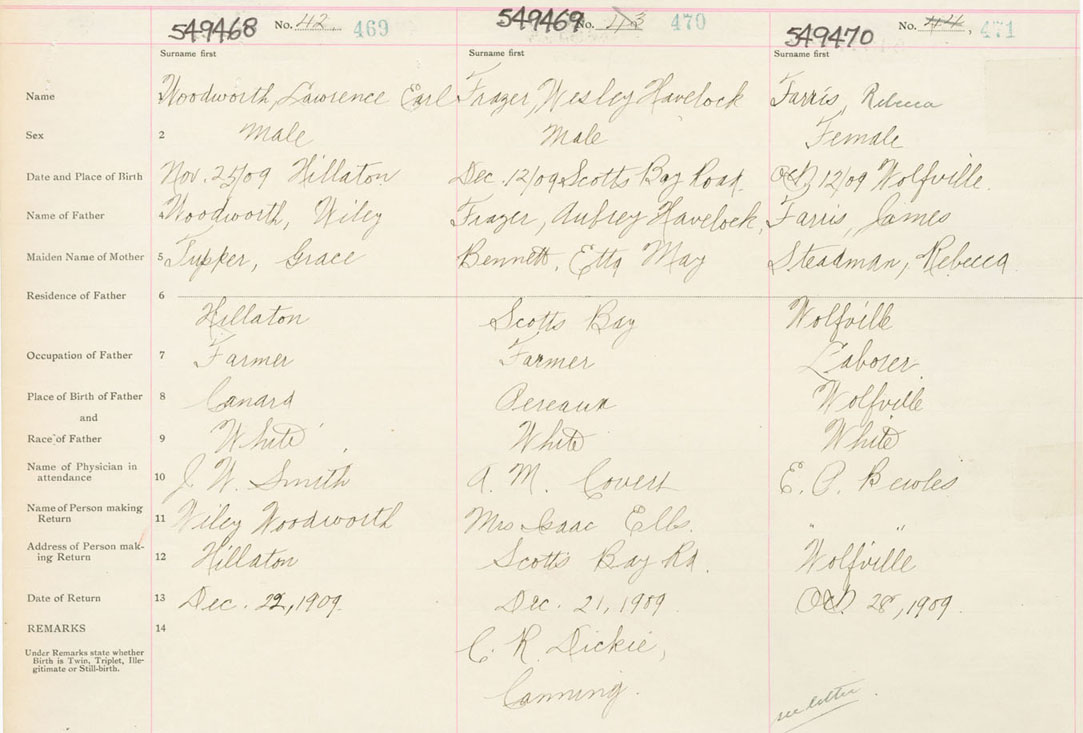 549468 No. 42 469 549469 No. 43 470 549470 No. 44, 471
Surname first Surname first Surname first
Name Woodworth, Lawrence Earl Frazer, Wesley Havelock Farris, Rebecca
Sex 2 Male Male Female
Date and Place of Birth Nov. 25/09 Hillaton Dec. 12/09 Scotts Bay Road. Oct 12/09 Wolfville.
Name of Father Woodworth, Wiley Frazer, Aubrey Havelock, Farris, James
Maiden Name of Mother 5 Tupker, Grace Bennett, Etta May Steadman, Rebecca
Residence of Father 6
Hillaton Scotts Bay Wolfville
Occupation of Father 7 Farmer Farmer Laborer
Place of Birth of Father 8 Canard Pereaux Wolfville
and
Race of Father 9 White White White
Name of Physician in
attendance 10 J. W. Smith A. M. Covert E. P.
Name of Person making
Return 11 Wiley Woodworth Mrs Isaac Ells. " "
Address of Person mak-
ing Return 12 Hillaton Scotts Bay Rd. Wolfville
Date of Return 13 Dec. 22, 1909. Dec. 21, 1909. Oct. 28, 1909.
REMARKS 14
C. R. Dickie,
Under Remarks state whether
Birth is Twin, Triplet, Ille-
gitimate or Still-birth.
Canning.
see letter